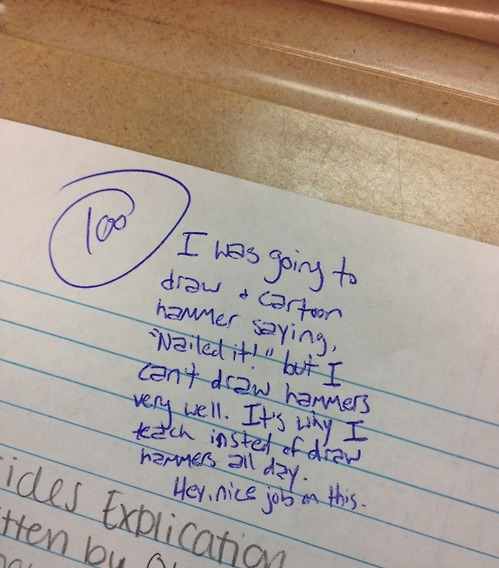 100
I was going to
draw a cartoon
hammer saying,
"Nailed it!" but I
can't draw hammers
very well. It's why I
teach insted of draw
hammers all day.
Hey, nice job on this.
ides Explication
itten by